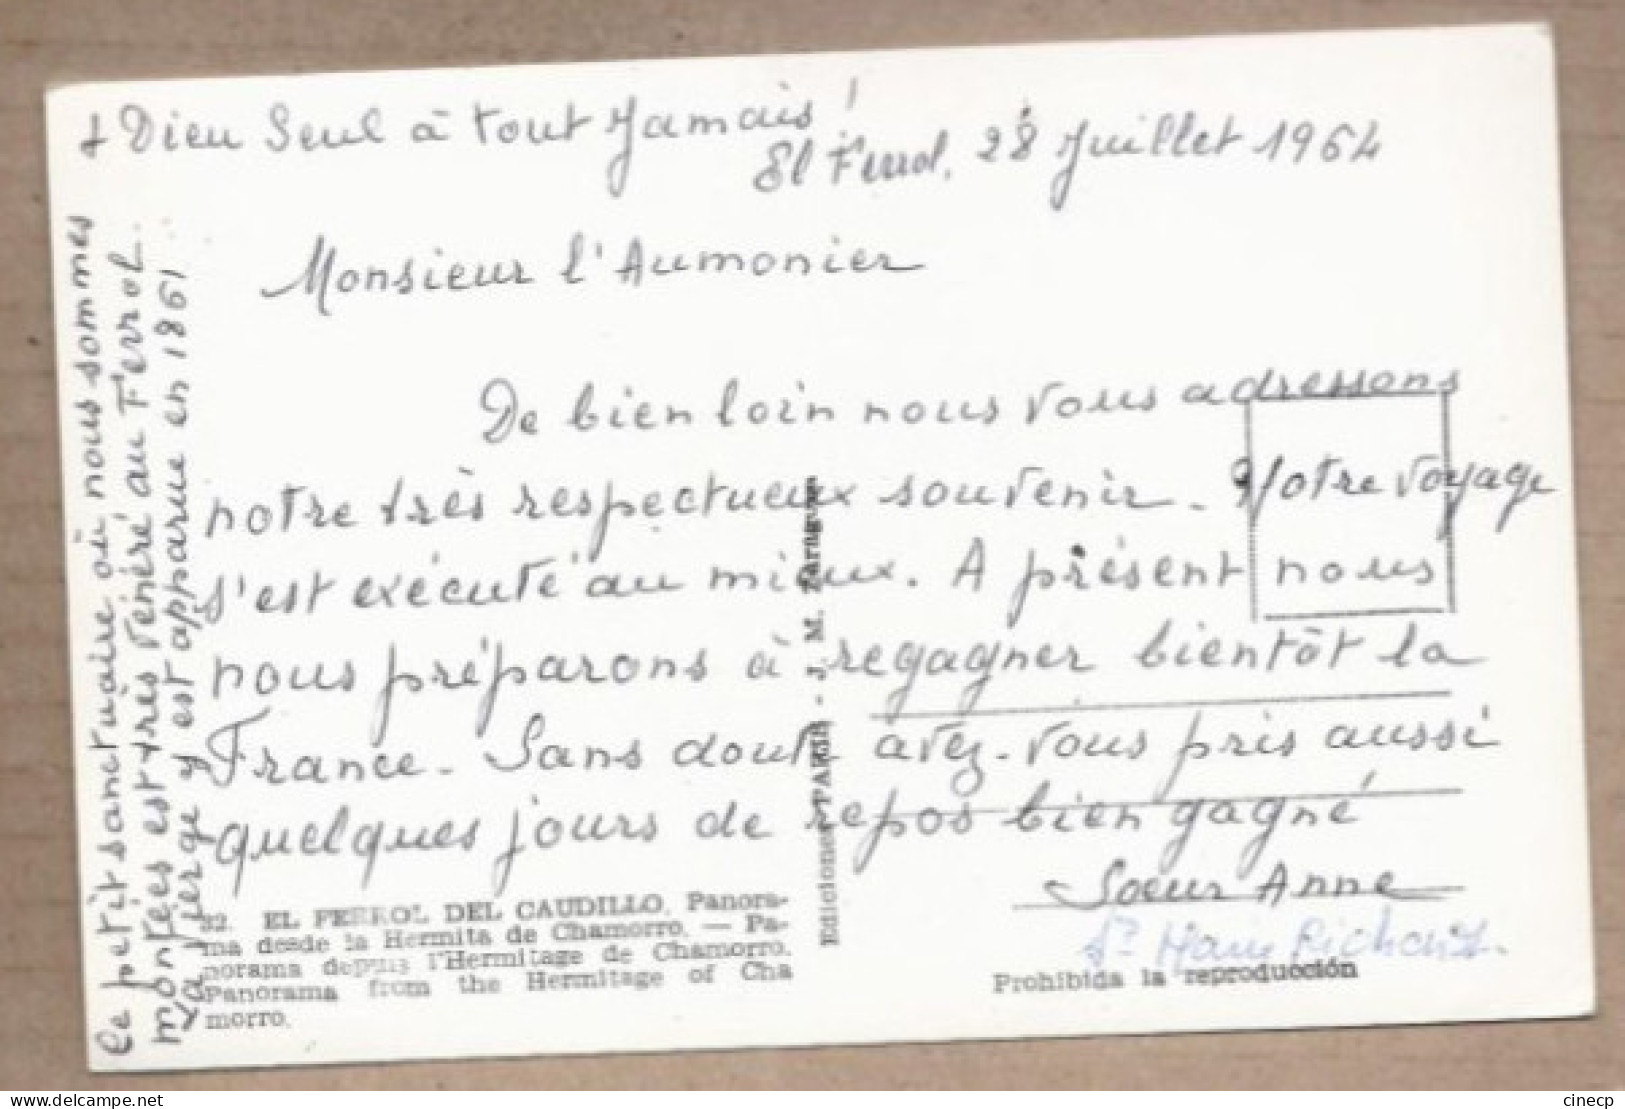 + Dieu Seul à tout Jamais !
El Ferrol, 28 Juillet 1964
Monsieur l'Aumonier
De bien loin nous vous adressons
notre très respectueux souvenir. Notre voyage
s'est exécuté au mieux. A présent nous
nous préparons à regagner bientôt la
France. Sans doute avez-vous pris aussi
quelques jours de repos bien gagné
Soeur Anne
Sr Marie
Ce petit sanctuaire où nous sommes
montées est très vénéré au Ferrol.
La Vierge y est apparue en 1861
32. EL FERROL DEL CAUDILLO. Panora-
ma desde la Hermita de Chamorro. — Pa-
norama depuis l'Hermitage de Chamorro.
Panorama from the Hermitage of Cha
morro.
Ediciones PARIS - J. M. Zaragoza
Prohibida la reproducción
delcampe.net
cinecp